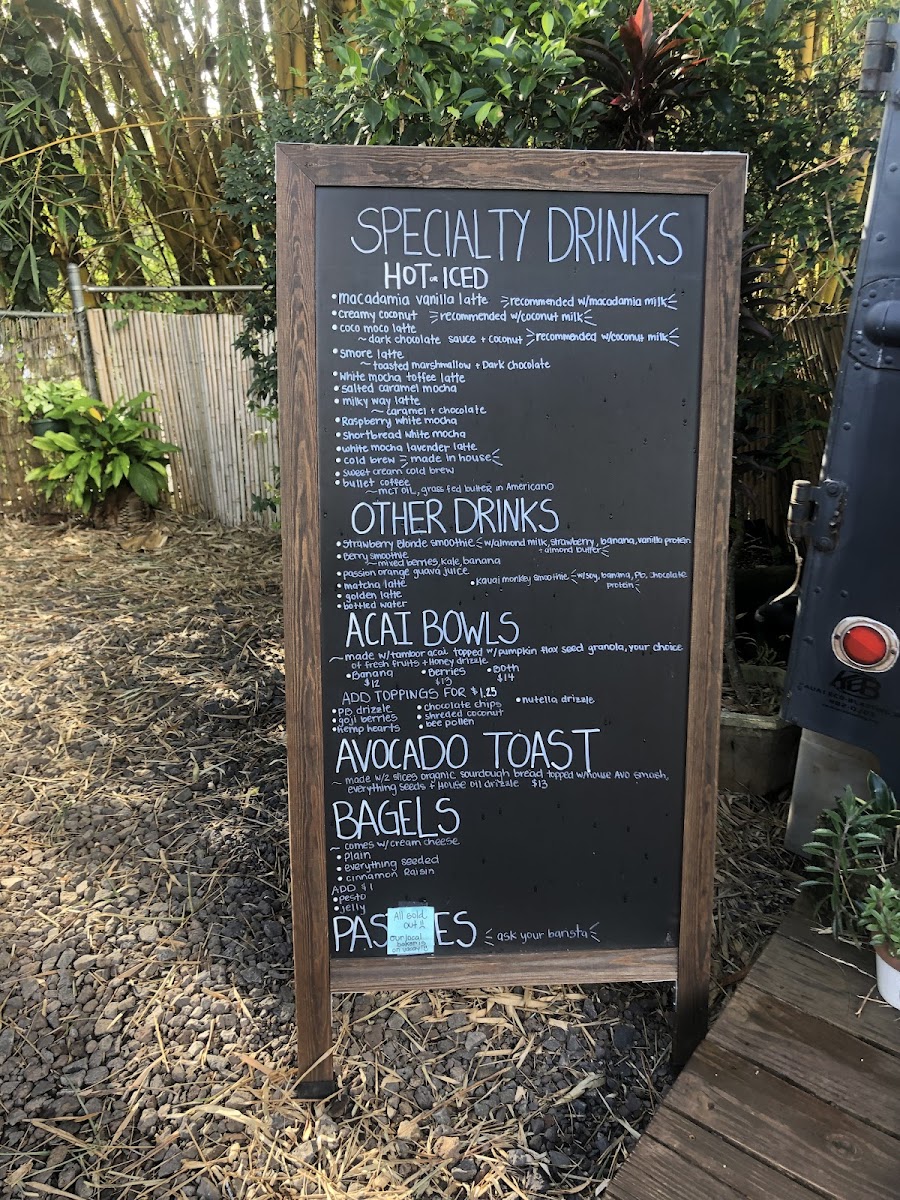 SPECIALTY DRINKS
HOT or ICED
• macadamia vanilla latte recommended w/macadamia milk
• creamy coconut recommended w/coconut milk
• coco moco latte
~dark chocolate sauce + coconut recommended w/coconut milk
• smore latte
~ toasted marshmallow + Dark chocolate
• White mocha toffee latte
• salted caramel mocha
• milky way latte
~ caramel + chocolate
• Raspberry white mocha
• shortbread white mocha
• white mocha lavender latte
• cold brew made in house
• sweet cream cold brew
• bullet coffee
~MCT OIL, grass fed butter in Americano
OTHER DRINKS
• Strawberry Blonde smoothie w/almond milk, strawberry, banana, vanilla protein
+ almond butter
• Berry smoothie
~mixed berries, kale, banana
• passion orange guava juice
• matcha latte
• kauai monkey smoothie w/soy, banana, Pb, chocolate
protein
• golden latte
• bottled water
ACAI BOWLS
~ made w/tambor acai topped w/pumpkin flax seed granola, your choice
of fresh fruits + Honey drizzle
• Banana • Berries • Both
$12 $13 $14
ADD TOPPINGS FOR $1.25
• PB drizzle • chocolate chips • nutella drizzle
• goji berries • shreded coconut
• hemp hearts • bee pollen
AVOCADO TOAST
~ made w/2 slices organic sourdough bread topped w/house AVO smash,
everything seeds + House oil drizzle $13
BAGELS
~ comes w/cream cheese
• plain
• everything seeded
• cinnamon Raisin
ADD $1
• pesto
• jelly
PAS ES ask your barista
All sold
out!!
our local
bakery is
on vacay!!